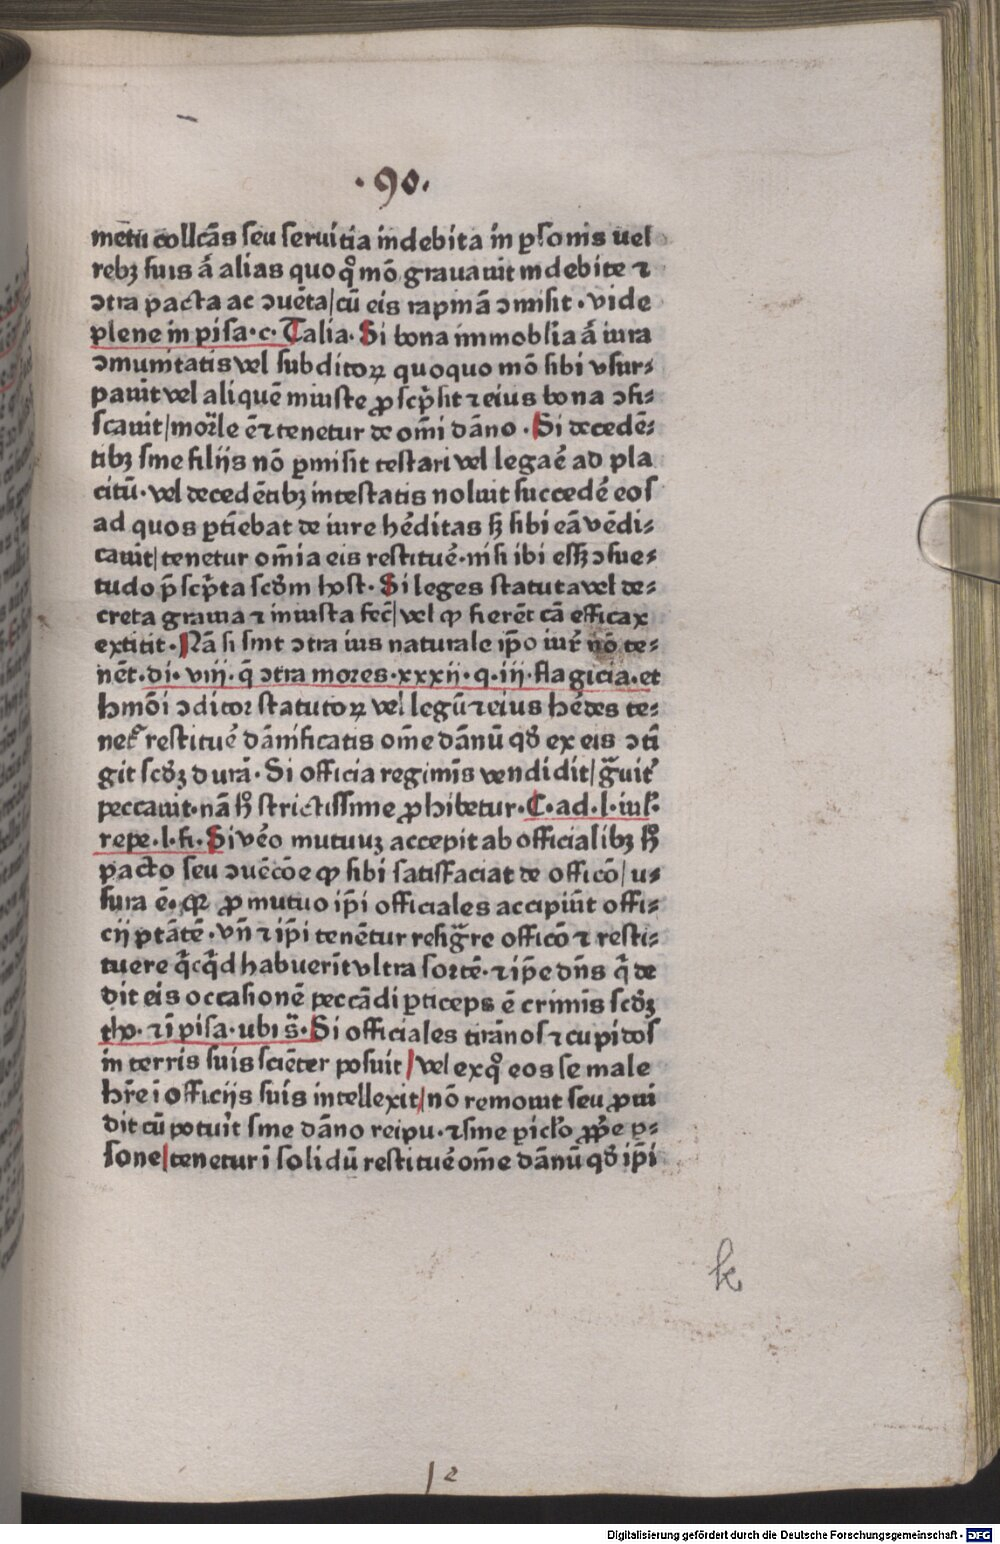 ·90·
metu collcãs seu seruitia indebita in ꝑsonis uel
rebꝫ suis ã alias quo qͦ mõ grauauit indebite ⁊
ↄtra pacta ac ↄuẽta/cũ eis rapinã ↄmisit · vide
plene in pisa·c·Talia·Si bona immobłia ã iura
ↄmunitatis vel subditoꝝ quoquo mõ sibi vsur⸗
pauit vel aliquẽ iniuste ꝓscp̃sit ⁊ eius bona ↄfi⸗
scauit/mor̃le ẽ ⁊ tenetur de om̃i dãno · Si decedẽ⸗
tibꝫ sine filijs nõ ꝑmisit testari vel legar̃e ad pla
citũ· vel decedẽtibꝫ intestatis noluit succedẽ eos
ad quos ꝑtiẽbat de iure hẽditas sꝫ sibi eã vẽdi⸗
cauit/tenetur om̃ia eis restituẽ·nisi ibi essꝫ ↄsue⸗
tudo p̃scp̃ta scđm host· Si leges statuta vel de⸗
creta graua ⁊ iniusta fec̃/ vel ꝙ fierẽt cã efficax
extitit · Nã si sint ↄtra ius naturale ip̃o iur̃ nõ te⸗
nẽt·di· viij· q̃ ↄtra mores·xxxij·q·iij·flagicia·et
hmõi ↄditor statutoꝝ vel legũ ⁊ eius hẽdes te⸗
net̃ restituẽ dãnificatis om̃e dãnũ qđ ex eis ↄtĩ
git scđꝫ durã· Si officia regimĩs vendidit/g̃uit̃
peccauit·nã h̃ strictissime ꝓhibetur·C·ad·l·iuł·
repe·l·fi·Si vẽo mutuuꝫ accepit ab officialibꝫ h̃
pacto seu ↄuẽcõe ꝙ sibi satisfaciat de officõ/ u⸗
sura ẽ· qꝛ ꝓ mutuo ip̃i officiales accipiũt offi⸗
cij ptãtẽ · vñ ⁊ ip̃i tenẽtur resig̃re officõ ⁊ resti⸗
tuere q̃cq̃d habuerĩt vltra sortẽ· ⁊ ip̃e dñs q̃ de
dit eis occasionẽ peccãdi ꝑticeps ẽ crimĩs scđꝫ
tho· ⁊ ĩ pisa· ubi s̃· Si officiales tirãnos ⁊ cupidos
in terris suis sciẽter posuit/ vel ex qͦ eos se male
hr̃e ĩ officijs suis intellexit/ nõ remouit seu ꝓui
dit cũ potuĩt sine dãno reipu·⁊ sine ꝑicło ꝓpͥe ꝑ⸗
sone/tenetur ĩ solidũ restituẽ om̃e dãnũ qđ ip̃i
k
12
Digitalisierung gefördert durch die Deutsche Forschungsgemeinschaft - DFG